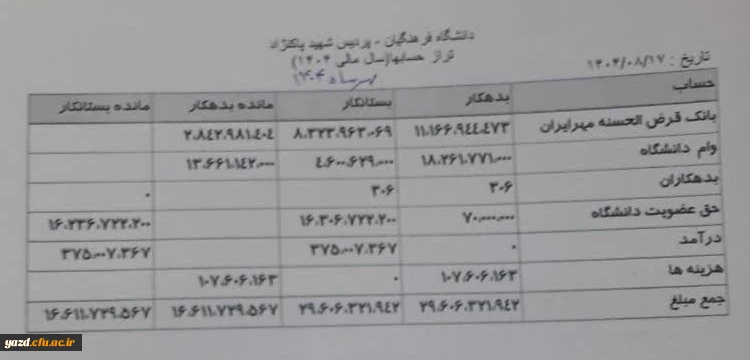 دانشگاه فرهنگیان - پردیس شهید پاکنژاد
تراز حسابها(سال مالی ۱۴۰۴)
مهرماه ۱۴۰۴
تاریخ : ۱۴۰۴/۰۸/۱۷
حساب بدهکار بستانکار مانده بدهکار مانده بستانکار
بانک قرض الحسنه مهرایران ۱۱.۱۶۶.۹۴۴.۴۷۳ ۸.۳۲۳.۹۶۳.۰۶۹ ۲.۸۴۲.۹۸۱.۴۰۴
وام دانشگاه ۱۸.۲۶۱.۷۷۱.۰۰۰ ۴.۶۰۰.۶۲۹.۰۰۰ ۱۳.۶۶۱.۱۴۲.۰۰۰
بدهکاران ۳۰۶ ۳۰۶ ۰
حق عضویت دانشگاه ۷۰.۰۰۰.۰۰۰ ۱۶.۳۰۶.۷۲۲.۲۰۰ ۱۶.۲۳۶.۷۲۲.۲۰۰
درآمد ۰ ۳۷۵.۰۰۷.۳۶۷ ۳۷۵.۰۰۷.۳۶۷
هزینه ها ۱۰۷.۶۰۶.۱۶۳ ۰ ۱۰۷.۶۰۶.۱۶۳
جمع مبلغ ۲۹.۶۰۶.۳۲۱.۹۴۲ ۲۹.۶۰۶.۳۲۱.۹۴۲ ۱۶.۶۱۱.۷۲۹.۵۶۷ ۱۶.۶۱۱.۷۲۹.۵۶۷
yazd.cfu.ac.ir